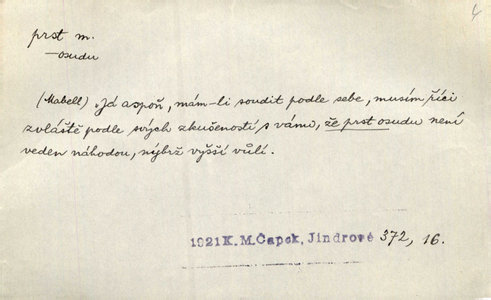 4
prst m.
—osudu
(Mabell) „Já aspoň, mám-li soudit podle sebe, musím říci
zvláště podle svých zkušeností s vámi, že prst osudu není
veden náhodou, nýbrž vyšší vůlí.
1921 K. M. Čapek, Jindrové 372, 16.